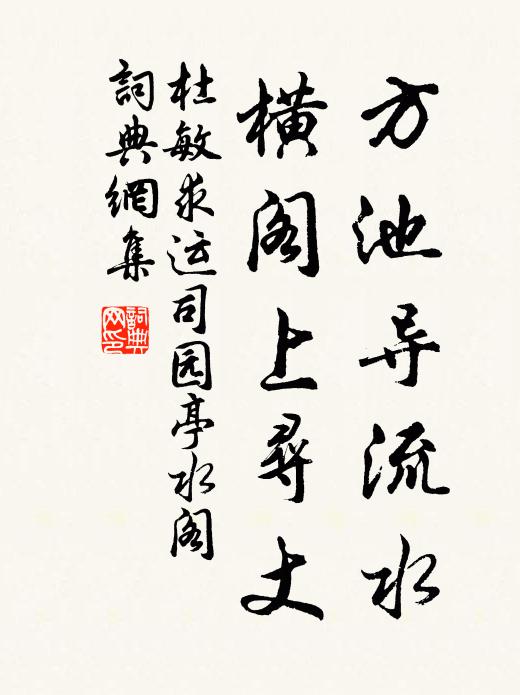 方池导流水
横阁上尋丈
杜敏求运司园亭水阁
詞典網集
詞典
网印